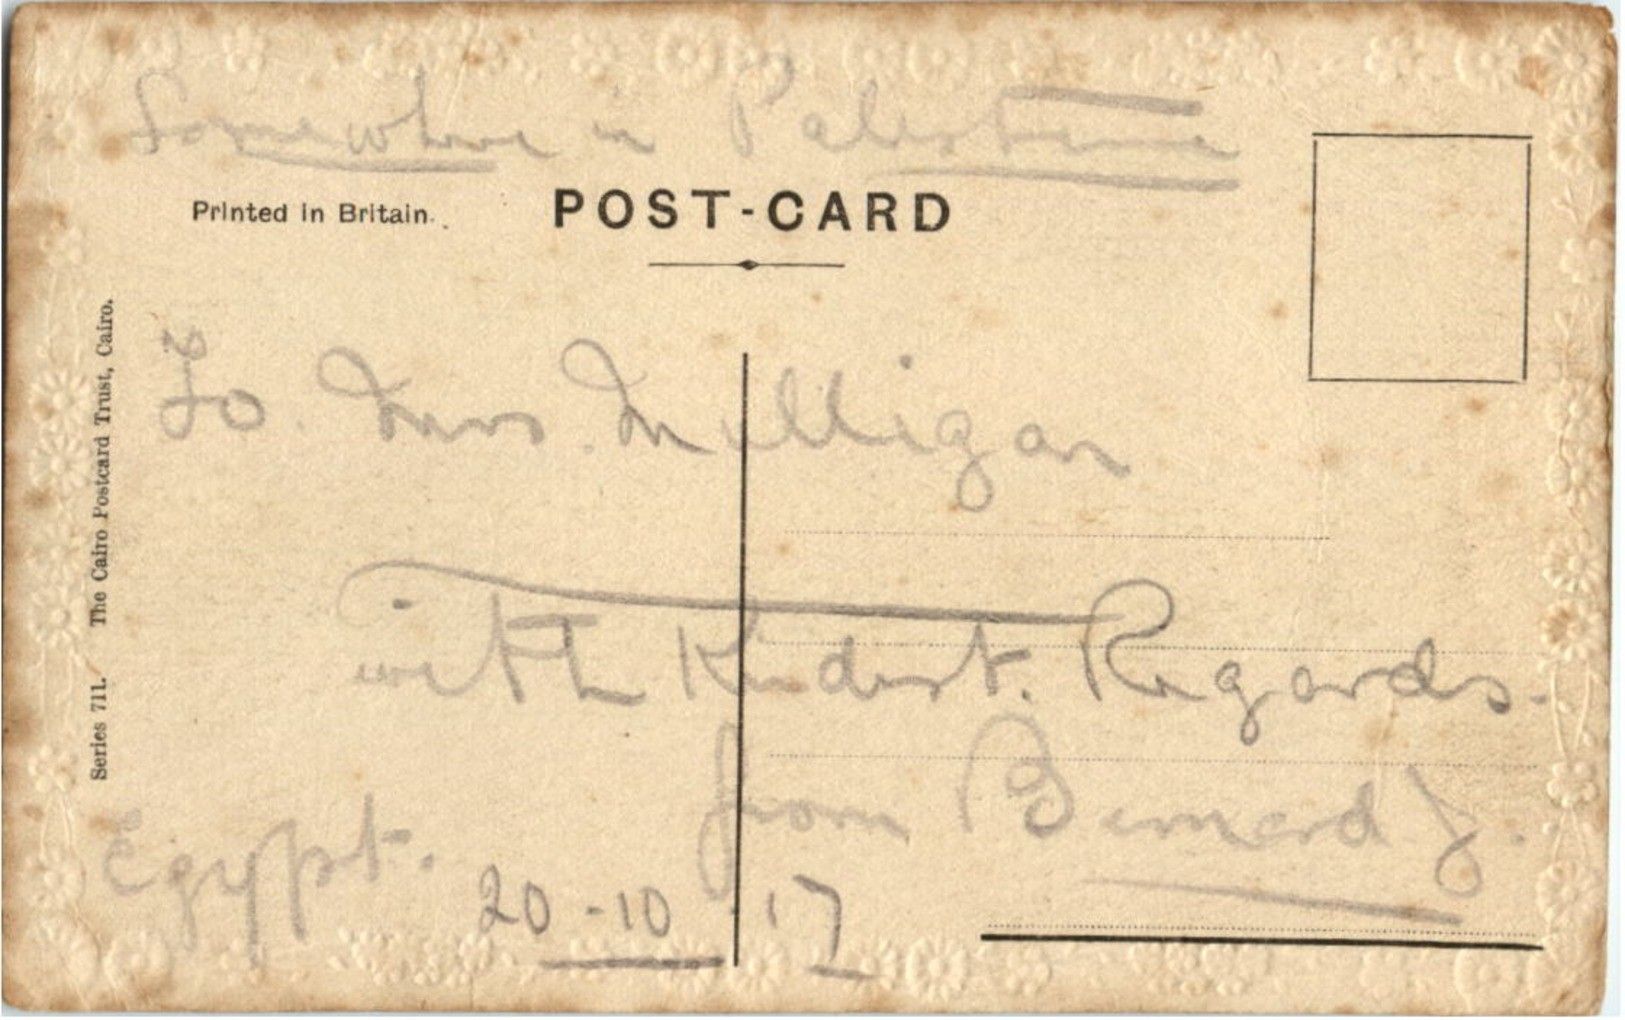 Somewhere in Palestine
Printed in Britain.
POST-CARD
Series 711. The Cairo Postcard Trust, Cairo.
To. Mrs. Milligan
with Kindest. Regards.
from Bernard J.
Egypt.
20-10-17